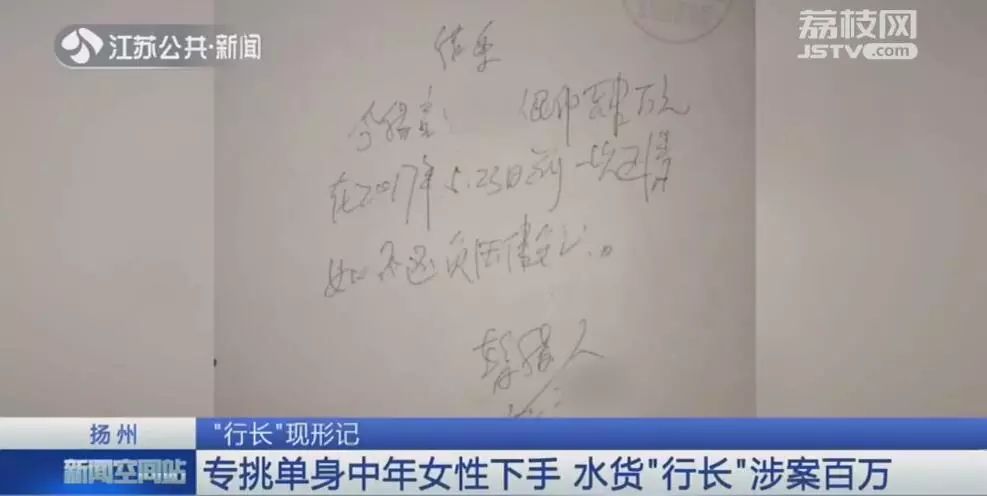 江苏公共·新闻
荔枝网
JSTV.com
借条
今借 人民币肆万元
在2017年5.23日前一次还清
如不还负法律
借人
扬州
"行长"现形记
新闻空间站
专挑单身中年女性下手 水货"行长"涉案百万